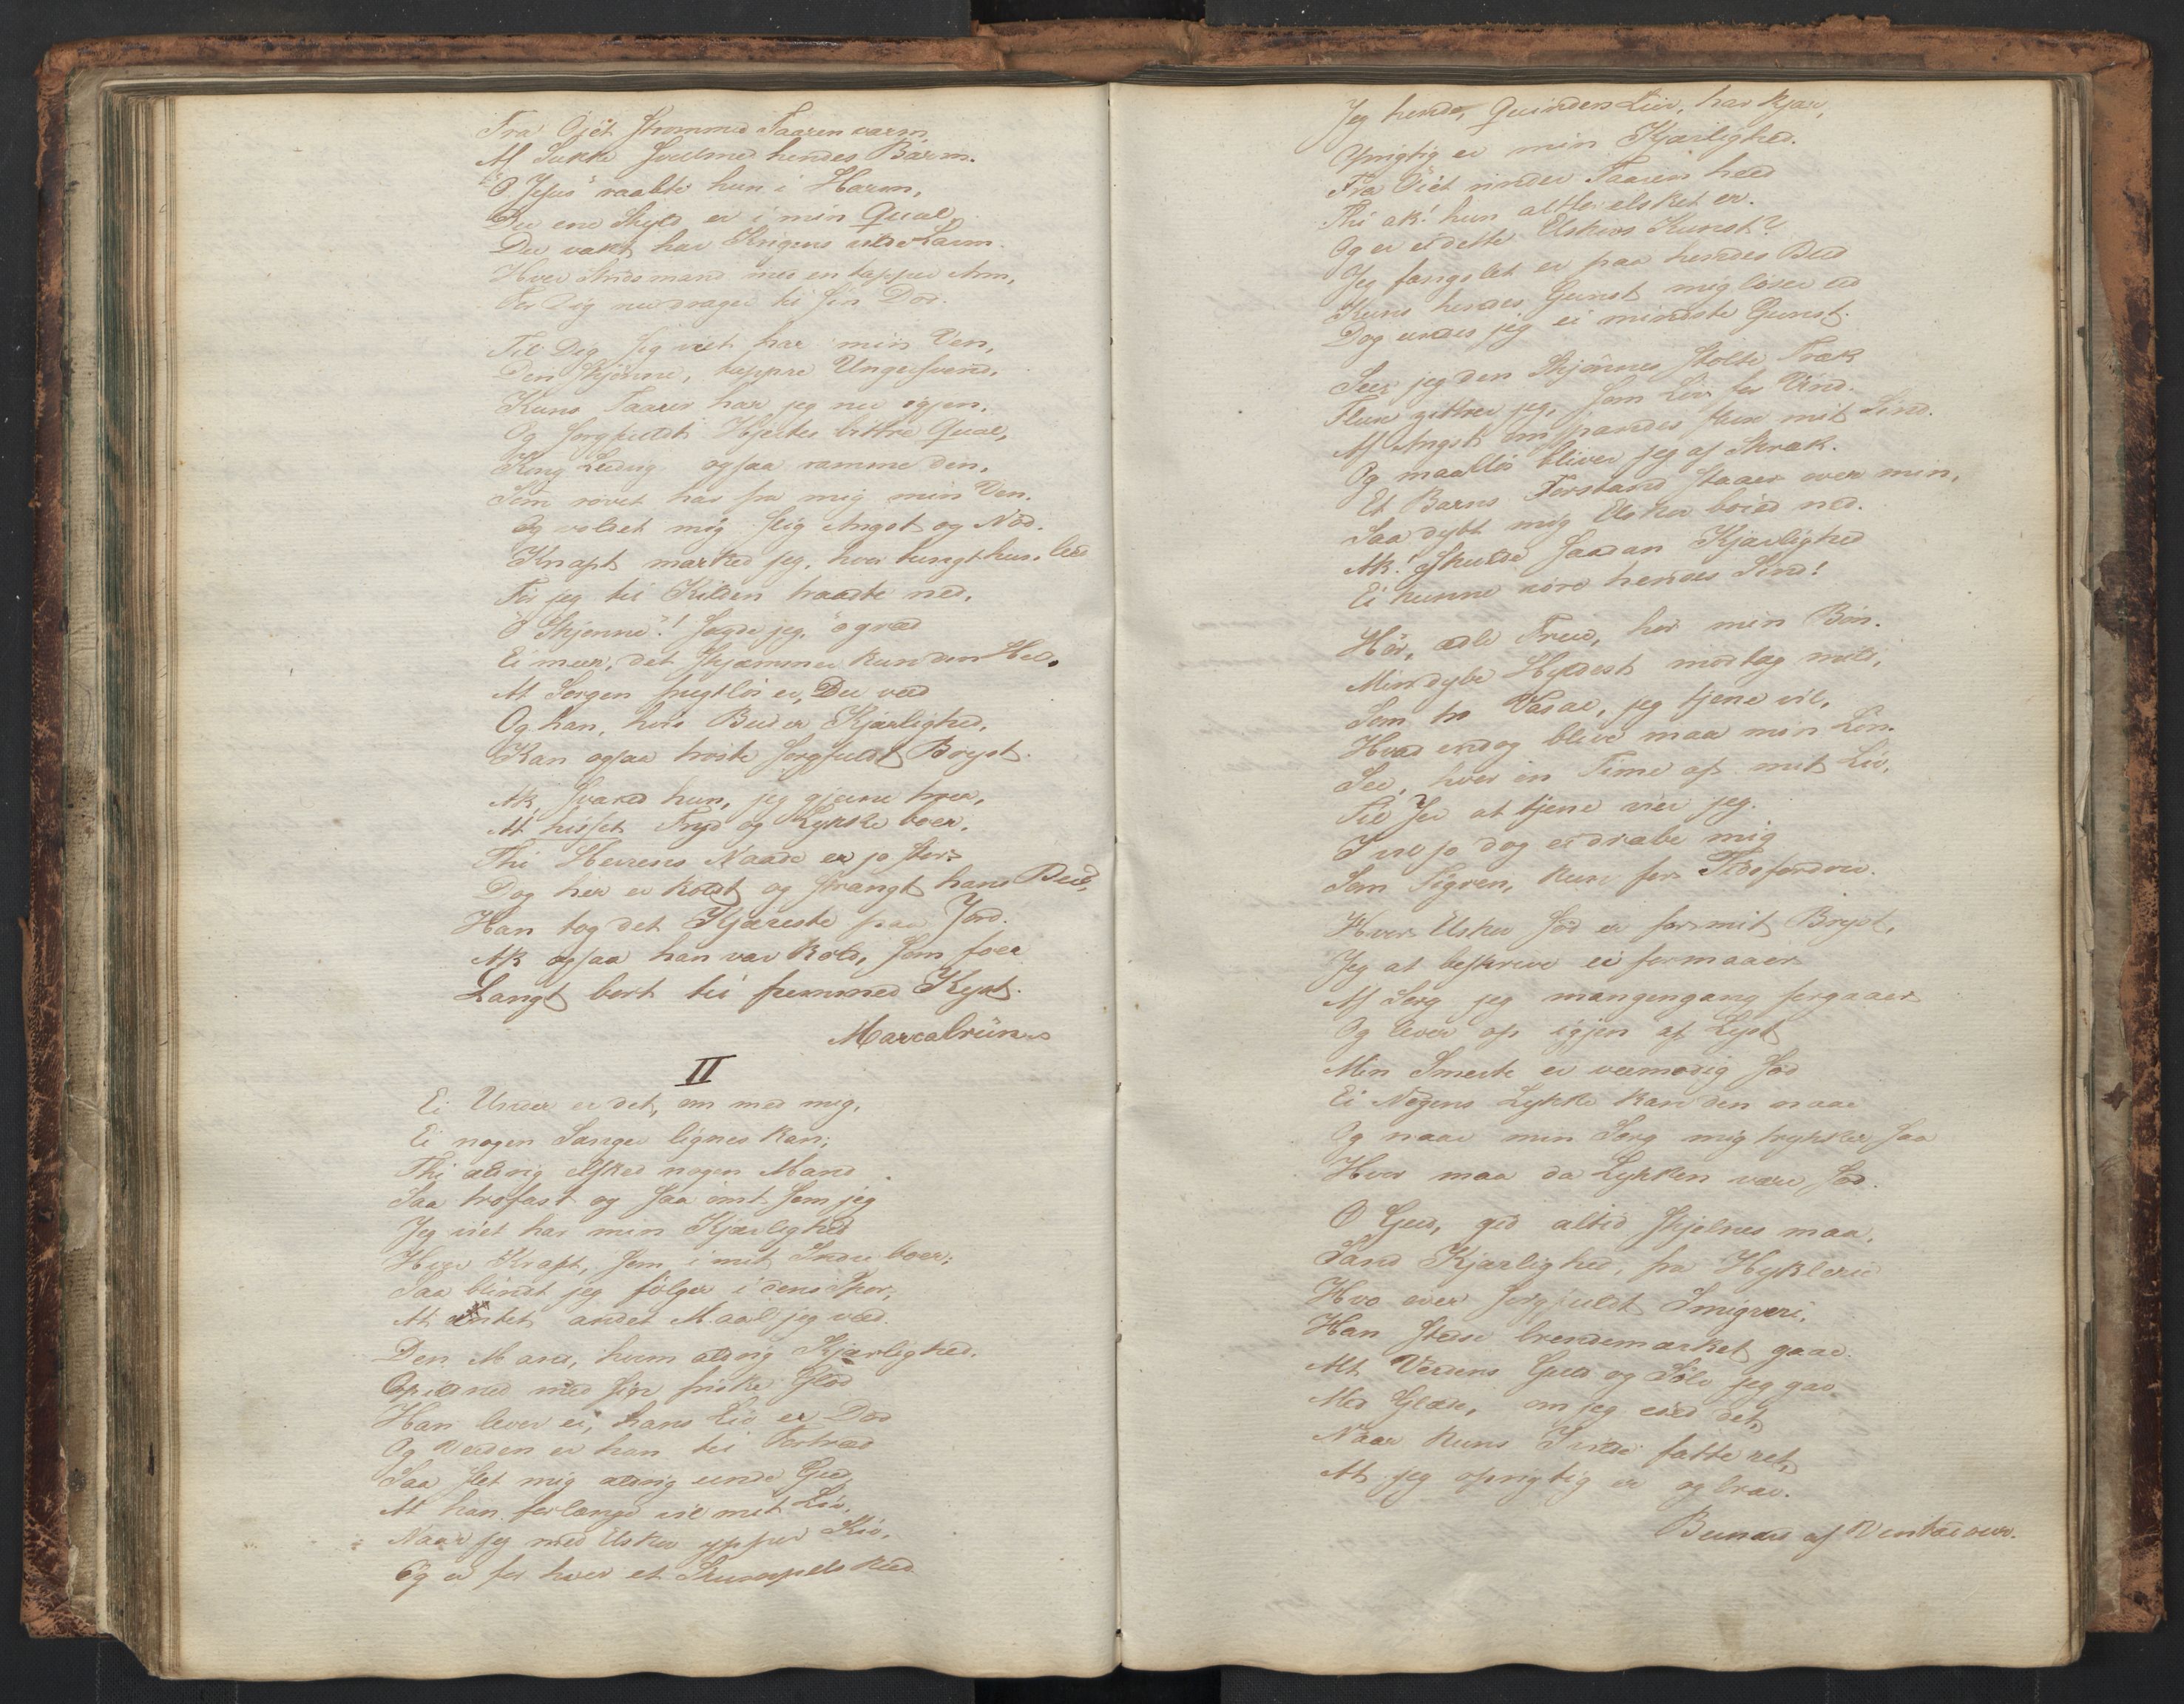 Fra Øjet strømmed Taaren varm,
Af Sukke svulmed hendes Barm.
"O Jesus" raabte hun i Harm,
Du ene Skyld er i min Qval,
Du vakt har Krigens vilde Larm.
Hver Stridsmand med en tapper Arm,
For Dig nu drager til sin Død.
Til Dig sig viet har min Ven,
Den skjønne, tappre Ungersvend,
Kuns Taarer har jeg nu igjen,
Og sorgfuldt Hjertes bittre Qval,
Kong Ludvig ogsaa ramme den,
Som røvet har fra mig min Ven.
Og voldet mig slig Angst og Nød.
Knapt mærked jeg, hvor tungt hun led
Før jeg til Kilden traadte ned,
"O Skjønne"! sagde jeg, "o græd
Ei meer, det skjæmmer kun den Hud,
At Sorgen frugtløs er, Du veed
Og han, hvis Bud er Kjærlighed,
Kan ogsaa trøste sorgfuldt Bryst.
Ak, svared hun, jeg gjerne troer,
At hisset Fryd og Lykke boer,
Thi Herrens Naade er jo stor;
Dog her er koldt og strængt hans Bud,
Han tog det Kjæreste paa Jord.
Ak ogsaa han var kold, som foer
Langt bort til fremmed Kyst.
Marcabrün
II
Ei Under er det, om med mig,
Ei nogen Sanger lignes kan;
Thi aldrig elsked nogen Mand
Saa trofast og saa ømt som jeg
Jeg viet har min Kjærlighed
Hver Kraft, som i mit Indre boer;
Saa blindt jeg følger i dens Spor,
At intet andet Maal jeg veed.
Den Mand, hvem aldrig Kjærlighed,
Opildned med sin friske Glød
Han lever ei, hans Liv er Død
Og Verden er han til Fortræd
Saa slet mig aldrig unde Gud,
At han forlænge vil mit Liv,
Naar jeg med Elskov ypper Kiv,
Og er for hver et
Jeg hende, Quinden Liv, har kjær,
Oprigtig er min Kjærlighed.
Fra Øiet rinder Taaren heed
Thi ak! hun altfor elsket er.
Og er ei dette Elskovs Kunst?
Jeg fængslet er paa hendes Bud
Kuns hendes Gunst mig løser ud
Dog undes jeg ei mindste Gunst.
Seer jeg den Skjønnes stolte Træk
Flux zittrer jeg, som Løv for Vind.
Af Angst omspændes flux mit Sind.
Og maalløs bliver jeg af Skræk.
Et Barns Forstand staaer over min,
Saa dybt mig Elskov bøied ned.
Ak! skulde saadan Kjærlighed
Ei kunne røre hendes Sind!
Hør, ædle Frue, hør min Bøn.
Min dybe Hyldest modtag mild,
Som tro Vasal, jeg tjene vil,
Hvad endog blive maa min Løn.
See, hver en Time af mit Liv,
Til Jer at tjene vier jeg.
I vil jo dog ei dræbe mig
Som Tigren, kun for Tidsfordriv.
Hver Elskov sød er for mit Bryst,
Jeg at beskrive ei formaaer
Af Sorg jeg mangengang forgaaer
Og lever op igjen af Lyst
Min Smerte er veemodig sød
Ei Nogens Lykke kan den naae
Og naar min Sorg mig trykker saa
Hvor maa da Lykken være sød.
O Gud, gid altid skjelnes maa,
Sand Kjærlighed, fra Hyklerie
Hvo øver svigfuldt Smigreri,
Han stedse brændemærket gaae.
Alt Verdens Guld og Sølv jeg gav
Med Glæde, om jeg eied det,
Naar kuns I vilde fatte ret,
At jeg oprigtig er og brav.
Bernard af Ventadour.